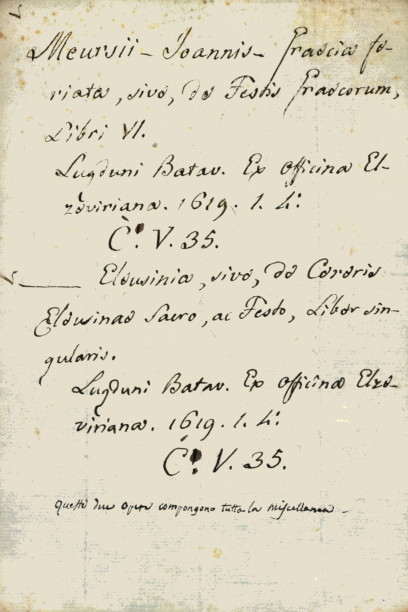 Meursii - Ioannis - Graecia fe-
riata, sive, de Festis Graecorum,
Libri VI.
Lugduni Batav. Ex Officina El-
zeviriana. 1619. 1. 4.°
C.° V. 35.
Eleusinia, sive, de Cereris
Eleusinae Sacro, ac Festo, Liber sin-
gularis.
Lugduni Batav. Ex Officina Elze-
viriana. 1619. 1. 4.°
C.° V. 35.
Queste due opere compongono tutta la miscellanea